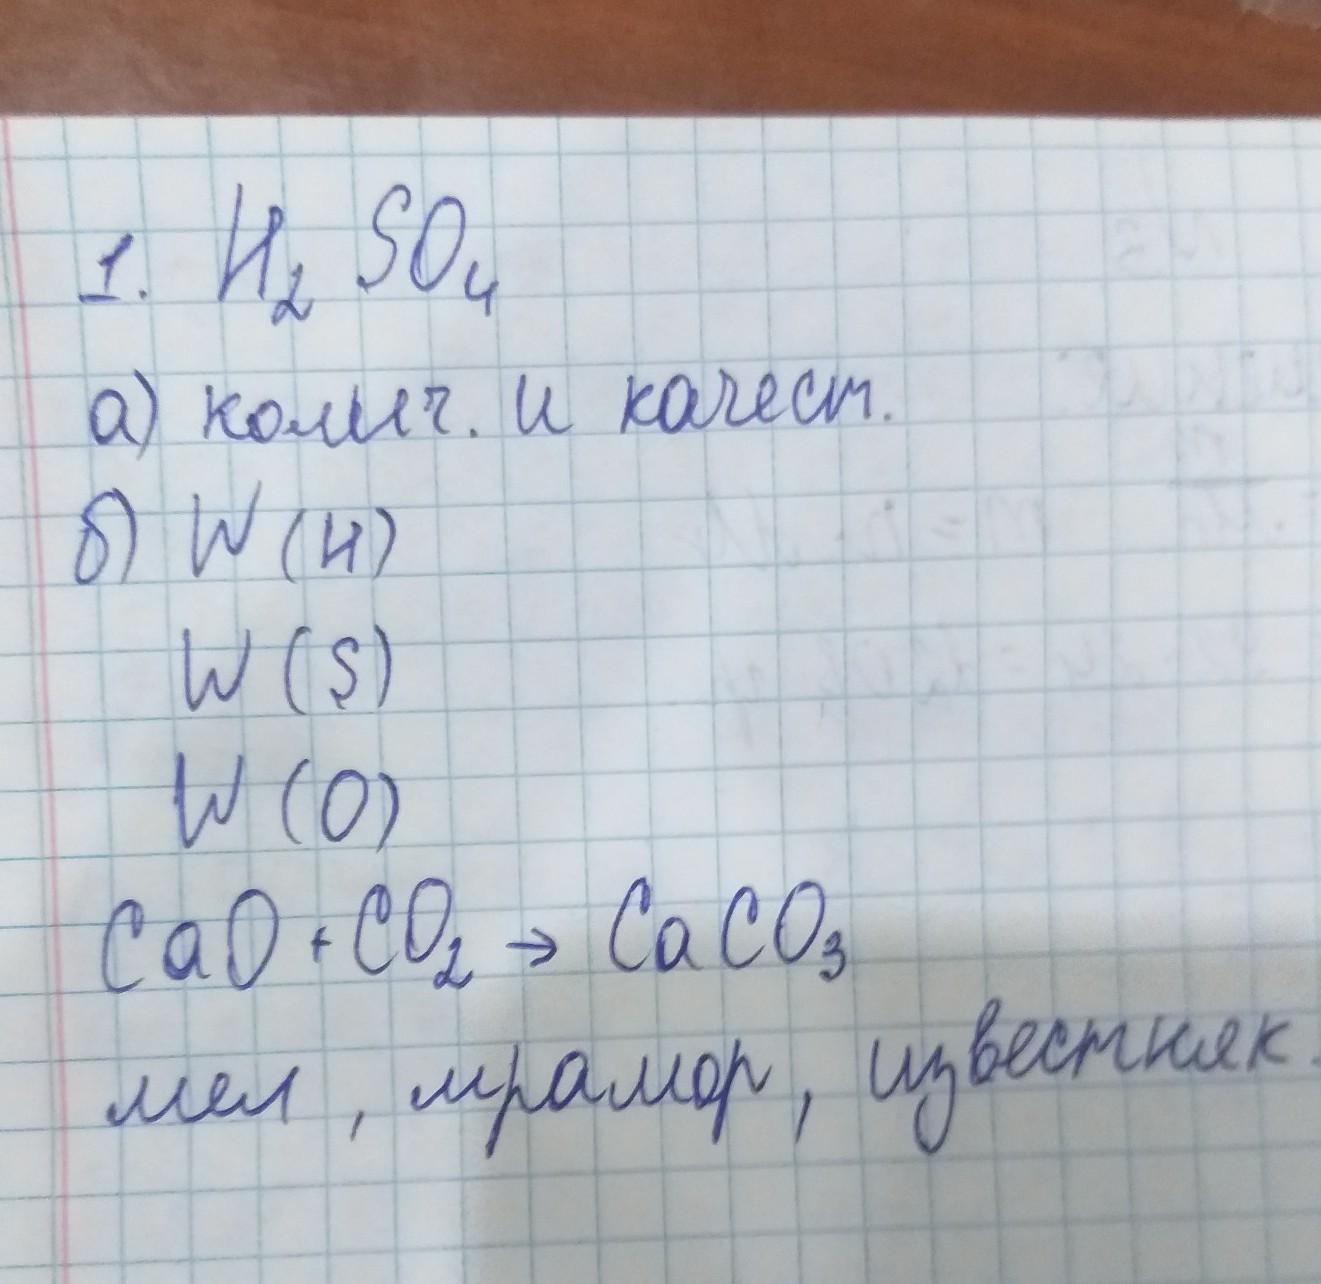 1. H₂SO₄
а) колич. и качест.
б) W (H)
W (S)
W (O)
CaO + CO₂ → CaCO₃
мел, мрамор, известняк.